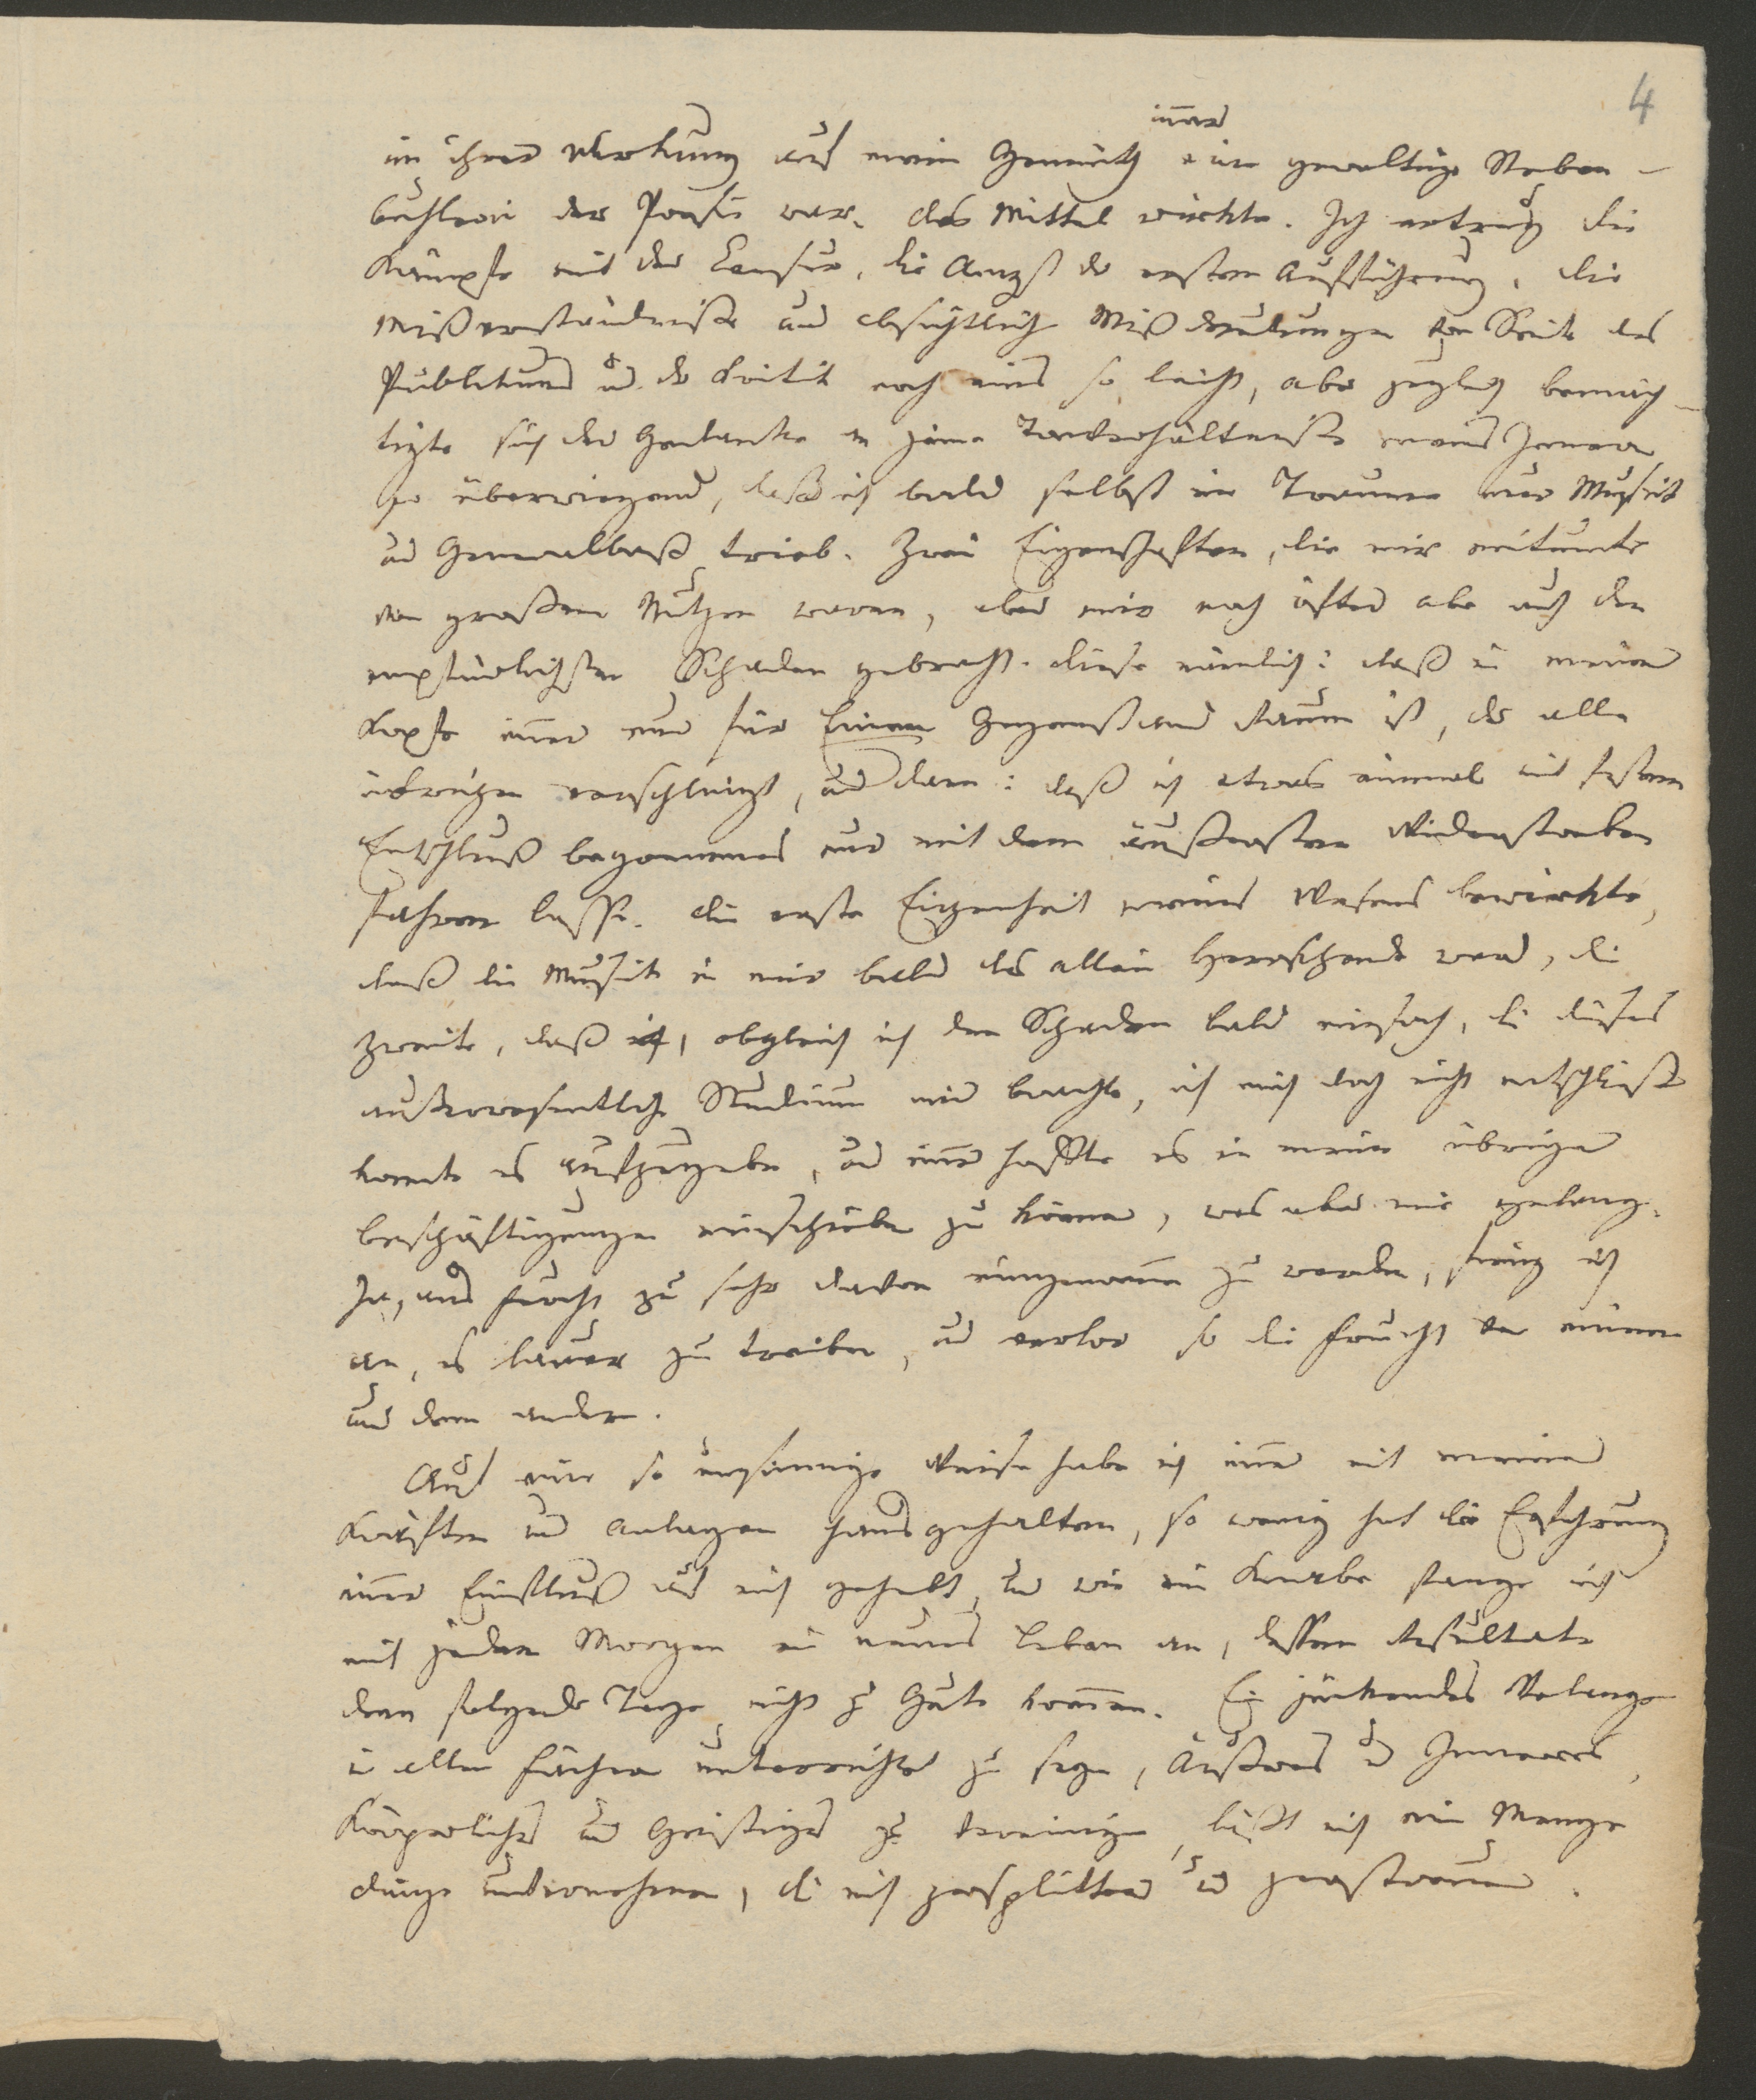 4
immer
in ihrer Wirkung auf mein Gemüth eine gewaltige Neben-
buhlerin der Poesie war. Das Mittel wirkte. Ich ertrug die
Kämpfe mit der Censur, die Angst der ersten Aufführung, die
Mißverständniße und absichtlich Mißdeutungen von Seite des
Publikums und der Kritik noch eins so leicht, aber zugleich bemäch-
tigte sich der Gedanke an jene Tonverhältniße meines Innern
so überwiegend, daß ich bald selbst im Traume nur Musik
und Generalbaß trieb. Zwei Eigenschaften, die mir mitunter
von großem Nutzen waren, aber mir noch öfter aber auch den
empfindlichsten Schaden gebracht. diese nämlich: daß in meinem
Kopfe immer nur für Einen Gegenstand Raum ist, der alle
übrigen verschlingt, und dann: daß ich etwas einmal mit festem
Entschluß begonnenes nur mit dem äußersten Widerstreben
fahren lasse. die erste Eigenheit meines Wesens bewirkte,
daß die Musik in mir bald das allein Herrschende ward, die
zweite, daß ich, obgleich ich den Schaden bald einsah, den dieses
außerwesentliche Studium mir brachte, ich mich doch nicht entschließen
konnte es aufzugeben, und immer hoffte es in meine übrigen
beschäftigungen einschieben zu können, was aber nie gelang.
Ja, aus Furcht zu sehr davon eingenommen zu werden, fieng ich
an, es lauer zu treiben, und verlor so die Frucht von einem
und dem andern.
Auf eine so unsinnige Weise habe ich immer mit meinen
Kräften und Anlagen hausgehalten, so wenig hat die Erfahrung
immer Einfluß auf mich gehabt, und wie ein Knabe fange ich
mit jedem Morgen ein neues Leben an, dessen Resultate
dem folgenden Tage nicht zu Gute kommen. Ein juckendes Verlangen
in allen Fächern unterrichtet zu seyn, Äußeres und Inneres,
Körperliches und Geistiges zu vereinigen, läßt mich eine Menge
Dinge unternehmen, die mich zersplittern und zerstreuen.